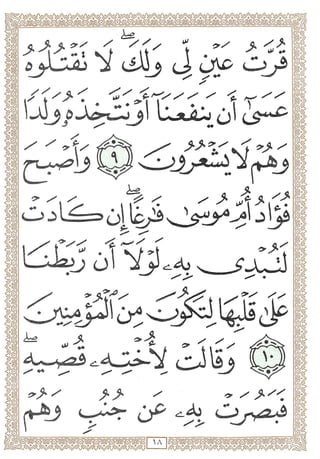 قُرَّتُ عَيْنٍ لِّي وَلَكَ ۖ لَا تَقْتُلُوهُ
عَسَىٰٓ أَن يَنفَعَنَآ أَوْ نَتَّخِذَهُۥ وَلَدًا
وَهُمْ لَا يَشْعُرُونَ ٩ وَأَصْبَحَ
فُؤَادُ أُمِّ مُوسَىٰ فَٰرِغًا ۖ إِن كَادَتْ
لَتُبْدِي بِهِۦ لَوْلَآ أَن رَّبَطْنَا
عَلَىٰ قَلْبِهَا لِتَكُونَ مِنَ ٱلْمُؤْمِنِينَ
١٠ وَقَالَتْ لِأُخْتِهِۦ قُصِّيهِ ۖ
فَبَصُرَتْ بِهِۦ عَن جُنُبٍ وَهُمْ
١٨